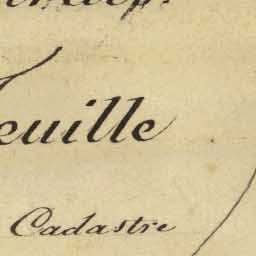 euille
Cadastre